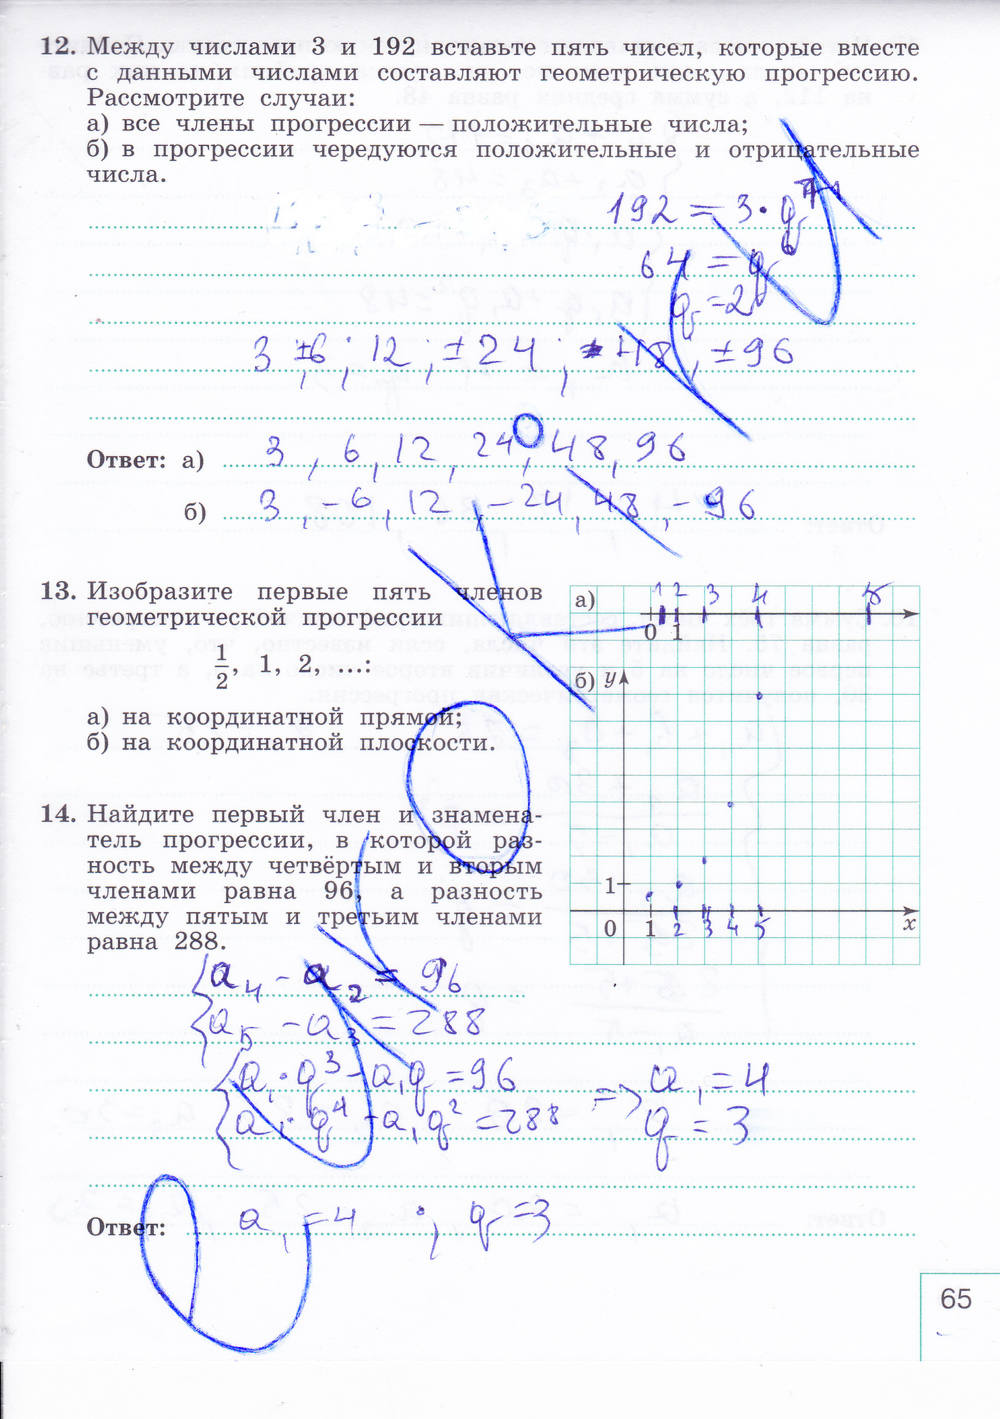 12. Между числами 3 и 192 вставьте пять чисел, которые вместе
с данными числами составляют геометрическую прогрессию.
Рассмотрите случаи:
а) все члены прогрессии — положительные числа;
б) в прогрессии чередуются положительные и отрицательные
числа.
192 = 3 · q
64 = q⁶
q = 2
3, ±6; 12; ±24; 48, ±96
Ответ: а) 3, 6, 12, 24, 48, 96
б) 3, -6, 12, -24, 48, -96
13. Изобразите первые пять членов
геометрической прогрессии
1/2, 1, 2, ...:
а) на координатной прямой;
б) на координатной плоскости.
а) 1 2 3 4 5
0 1
б) y
1
0 1 2 3 4 5 x
14. Найдите первый член и знамена-
тель прогрессии, в которой раз-
ность между четвёртым и вторым
членами равна 96, а разность
между пятым и третьим членами
равна 288.
a₄ - a₂ = 96
a₅ - a₃ = 288
a₁·q³ - a₁q = 96
a₁·q⁴ - a₁q² = 288
=> a₁ = 4
q = 3
Ответ: a₁ = 4; q = 3
65